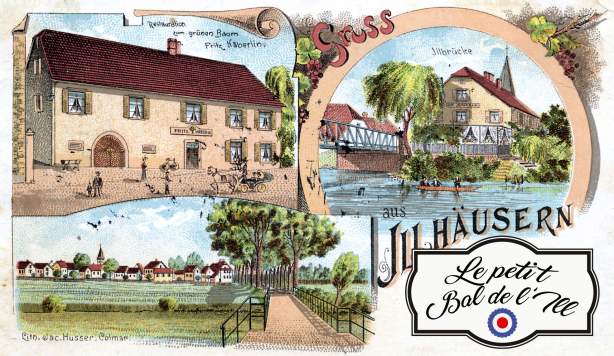 Restauration
zum grünen Baum
Fritz Häberlin.
Gruss
Jllbrücke
aus
JLLHÄUSERN
Le petit
Bal de l'Ill
Lith. Jac. Husser, Colmar